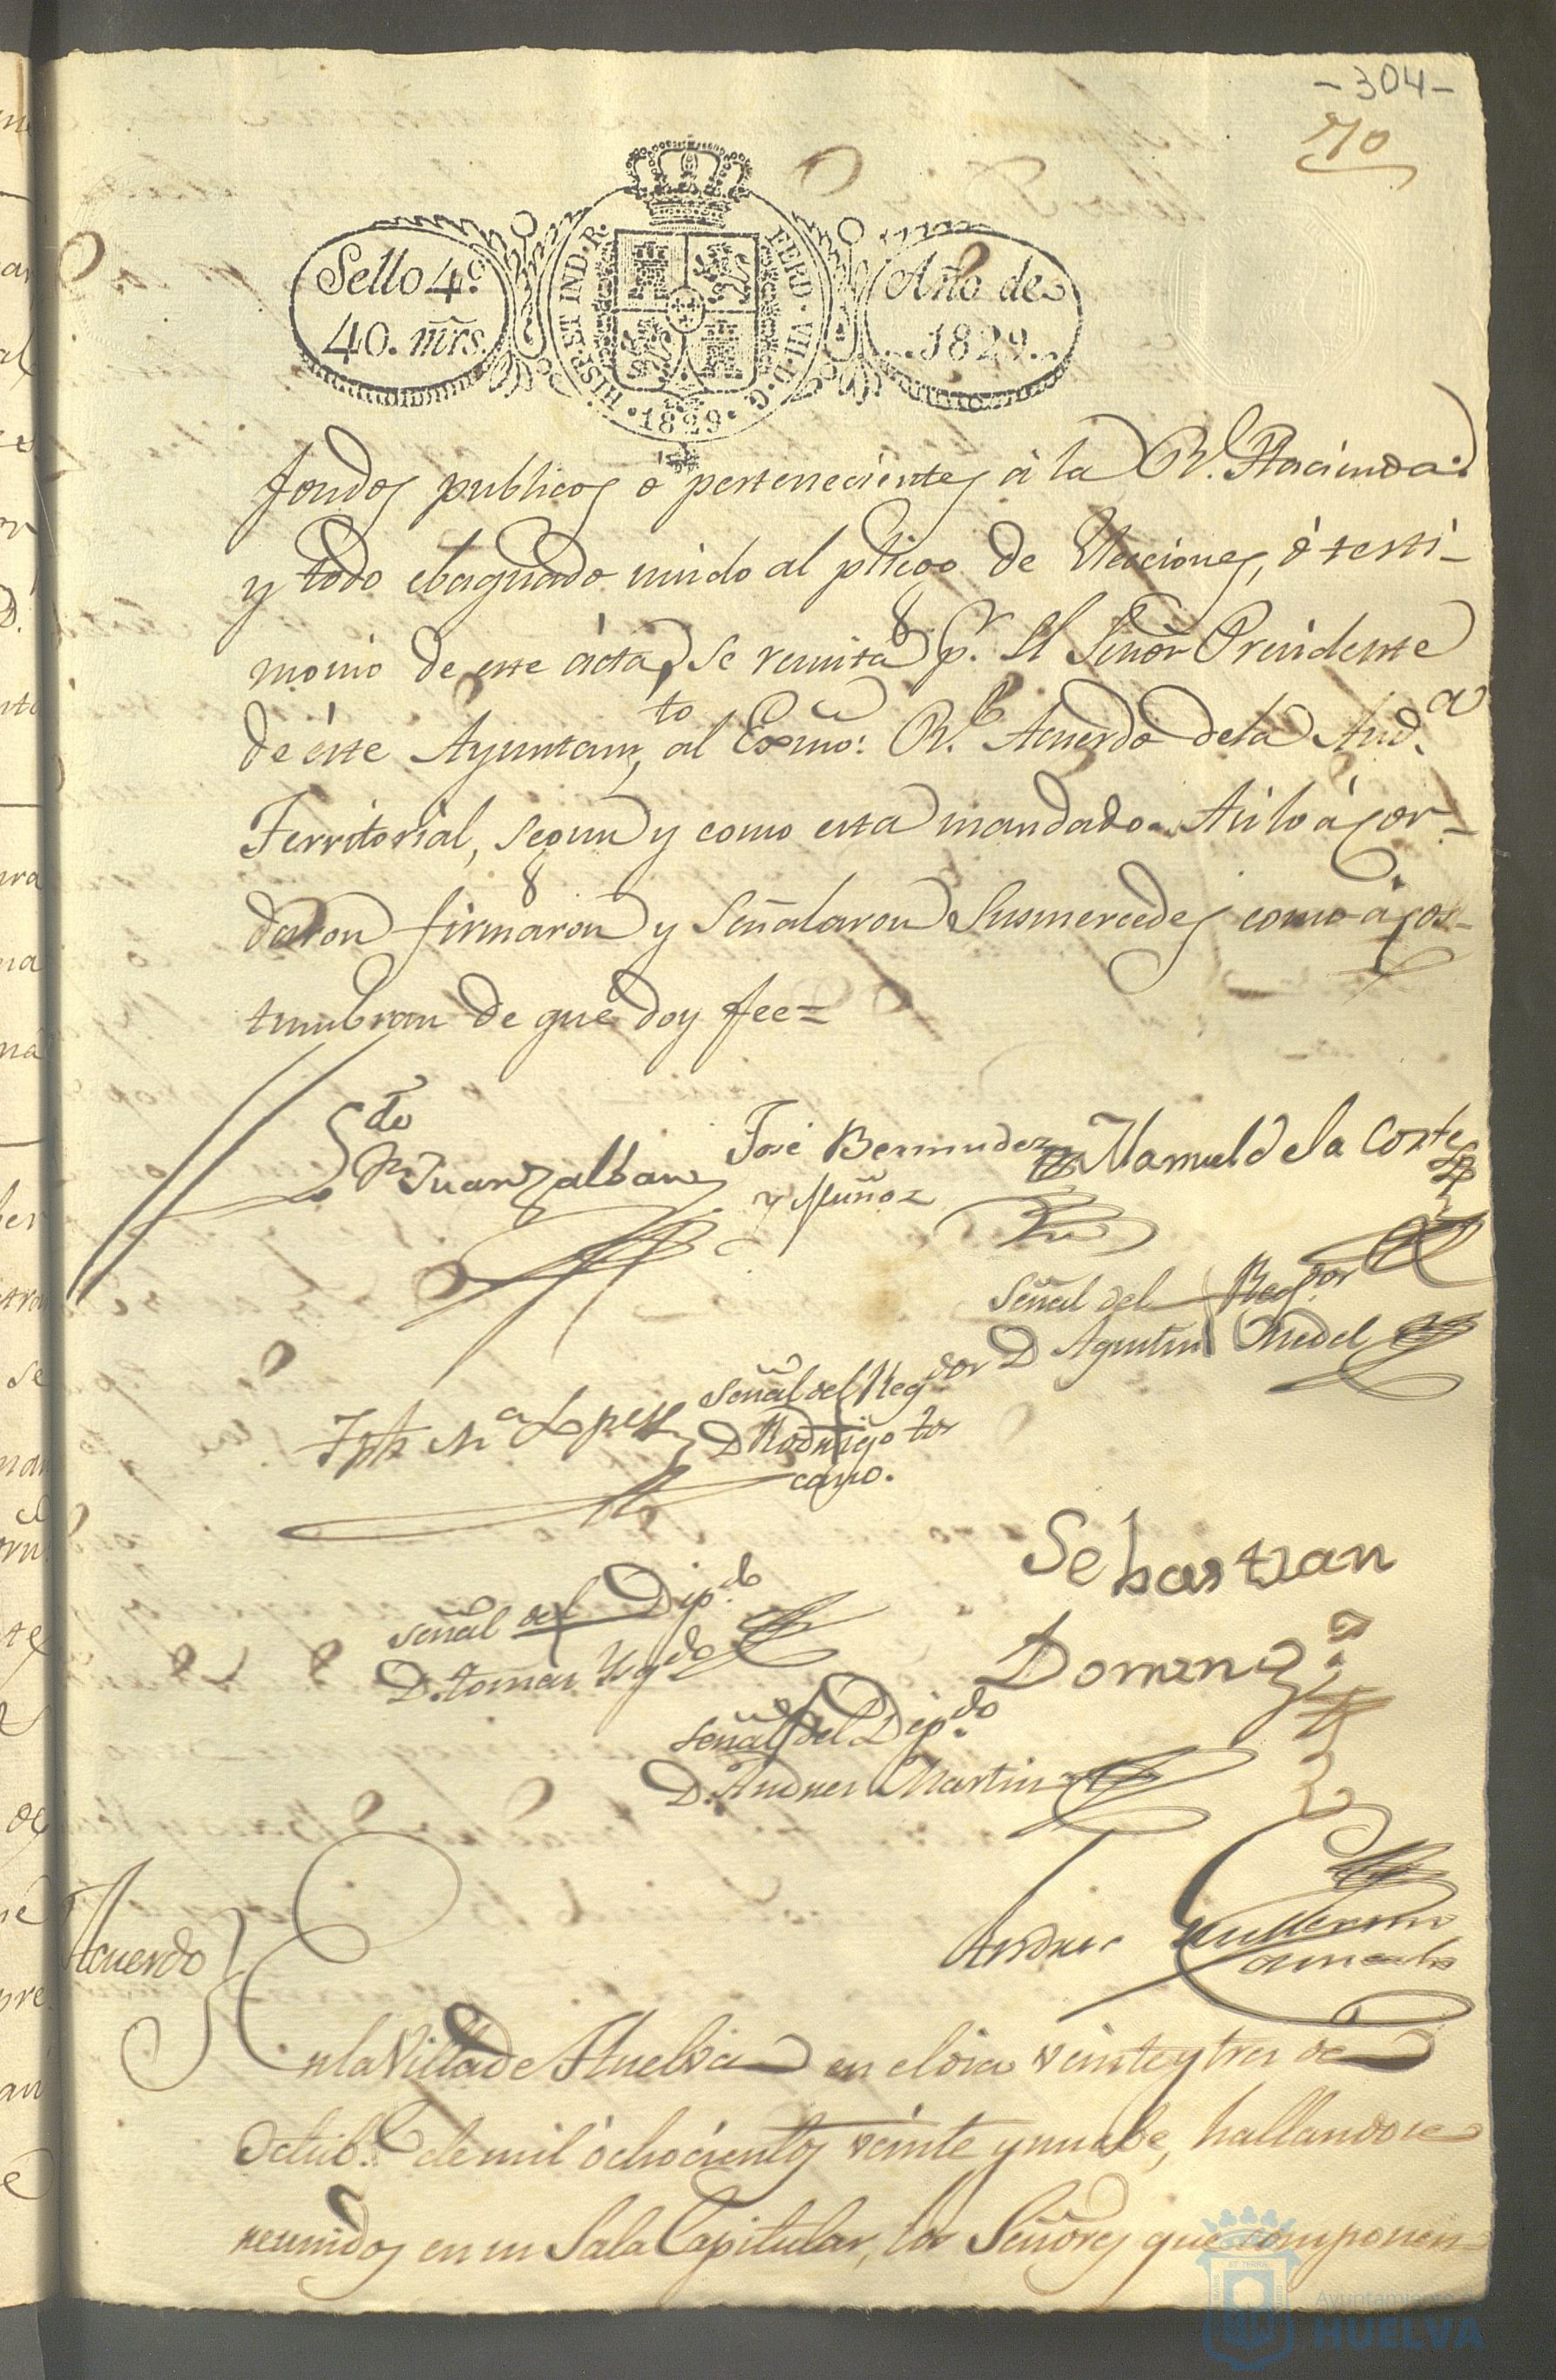 -304-
70
Sello 4º
40. mrs.
HISP. ET IND. R.
FERD. VII. D. G.
.1829.
Año de
..1829..
fondos publicos ó pertenecientes á la Rl. Hacienda:
y todo evaquado unido al pliego de Elecciones, ó testi-
monio de este ácta, se remita pr. el Señor Precidente
de éste Ayuntamto, al Exmo: Rl. Acuerdo dela Auda.
Territorial, segun y como esta mandado. Asi lo ácor-
daron firmaron y Señalaron Susmercedes como ácos-
tumbran de que doy fee=
Juan Zalban
José Bermudez
y Muñoz
Manuel de la Corte
Señal del Regor
D Agustin Medel
Jph Ma Lpez
Señal del Regdor
D Rodrigo tos
cano.
Sebastian
Doming
Señal del Dipdo
D. Tomas
Señal del Dipdo
D. Andres Martin
Andres Guillermo
Acuerdo
En la Villa de Huelva en el dia veinte y tres de
Octube. de mil óchocientos veinte y nuebe, hallandose
reunidos en su Sala Capitular, los Señores que componen
Ayuntamiento
HUELVA